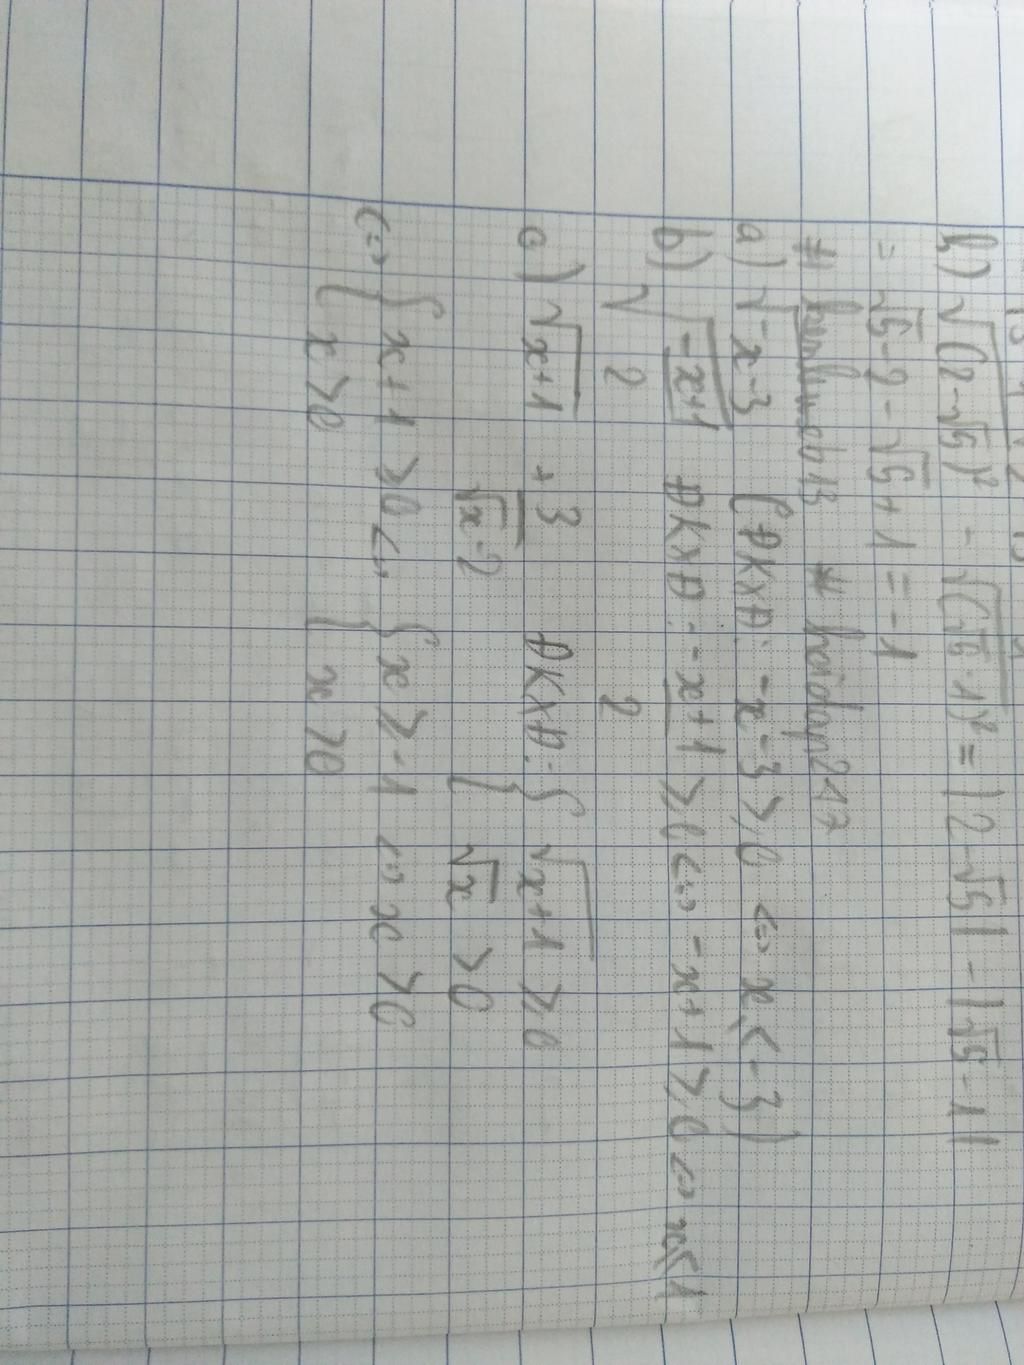 b) √(2-√5)² - √(√5-1)² = |2-√5| - |√5-1|
= √5-2-√5+1 = -1
# hoidap247
a) √-x-3 (ĐKXĐ: -x-3 ≥ 0 <=> x ≤ -3)
b) √(-x+1)/2 ĐKXĐ: (-x+1)/2 ≥ 0 <=> -x+1 ≥ 0 <=> x ≤ 1
c) √x+1 + 3/(√x-2) ĐKXĐ: { √x+1 ≥ 0
{ √x > 0
<=> { x+1 ≥ 0 <=> { x ≥ -1 <=> x > 0
{ x > 0 { x > 0